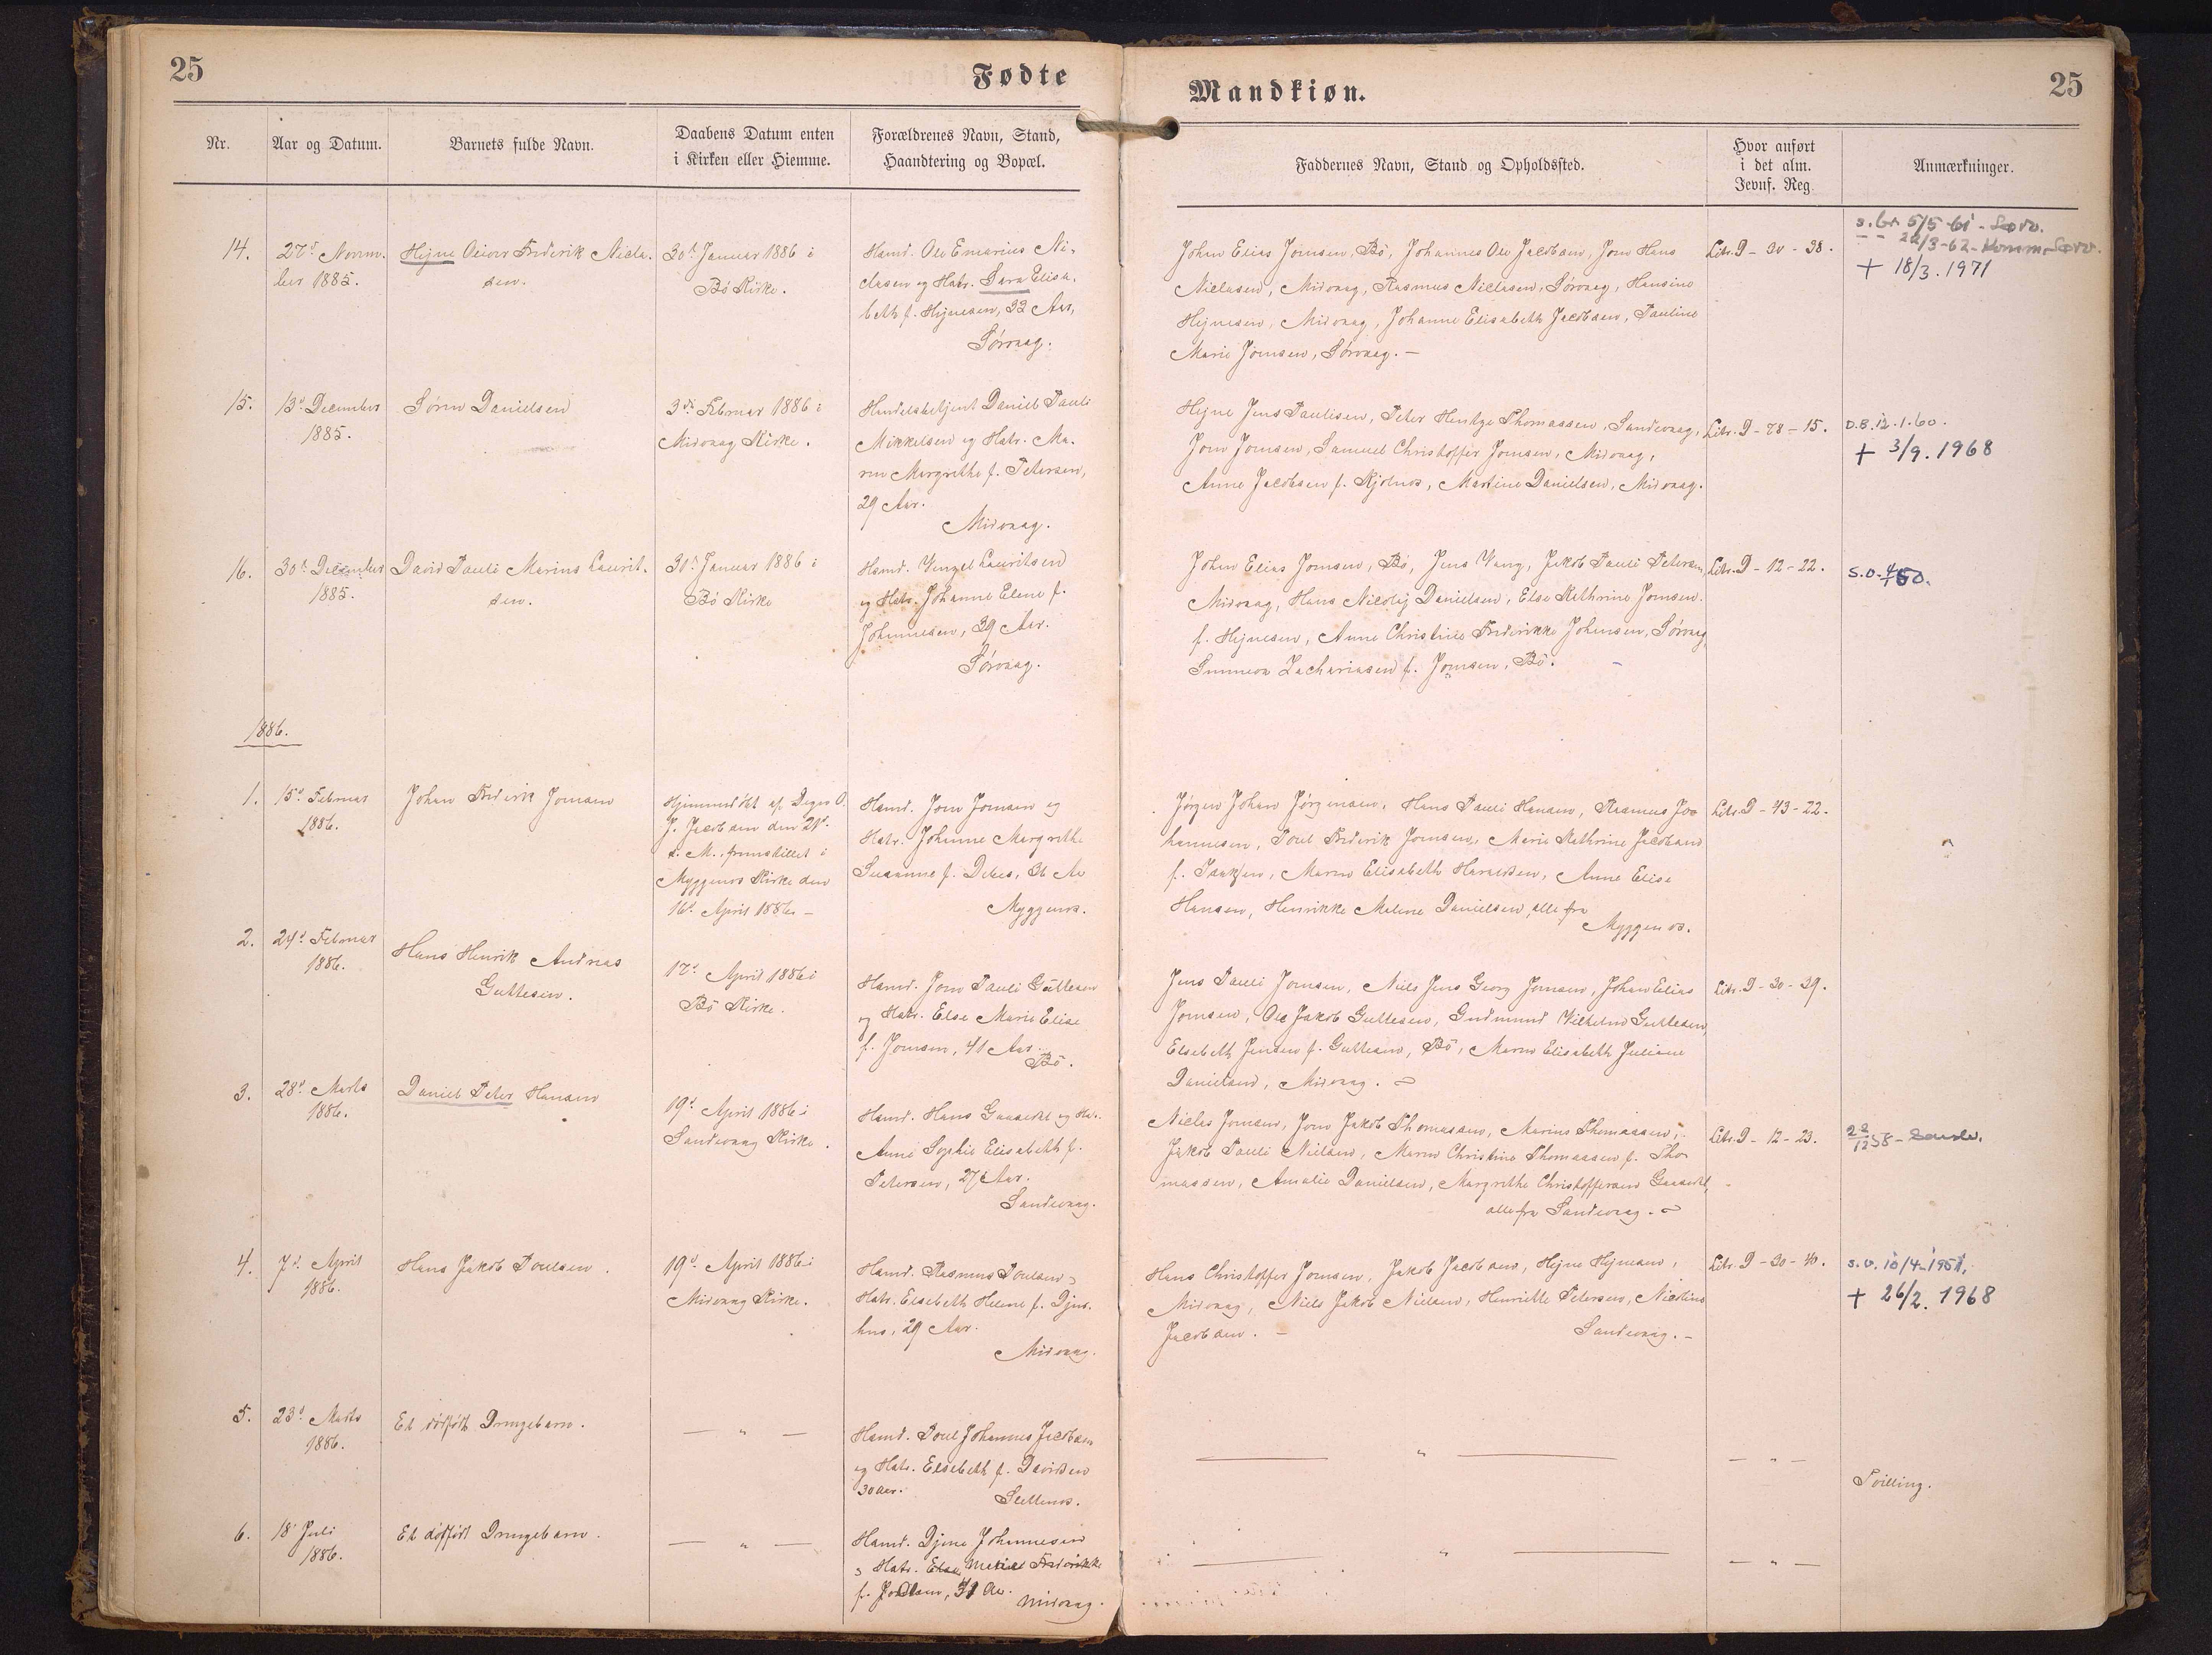 25
Fødte
Mandkiøn.
25
Nr.
Aar og Datum.
Barnets fulde Navn.
Daabens Datum enten
i Kirken eller Hiemme.
Forældrenes Navn, Stand,
Haandtering og Bopæl.
Faddernes Navn, Stand og Opholdssted.
Hvor anført
i det alm.
Jevnf. Reg
Anmærkninger.
14.
27d Novem-
ber 1885.
Hejne Frederik Nicla-
sen.
30d Januar 1886 i
Bö Kirke.
Hamd. Ole Emarius Ni-
clasen og Hstr. Sara Elisa-
beth f. Hejnesen, 33 Aar,
Sörvaag.
Johan Elias Jomsen, Bö, Johannes Ole Jacobsen, Jom Hans
Niclasen, Midvaag, Rasmus Niclasen, Sörvaag, Hansine
Hejnesen, Midvaag, Johanne Elisabeth Jacobsen, Pauline
Marie Jomsen, Sörvaag. —
Litr. D - 30 - 38.
s. br 5/5-61 - Sørv.
22/3-62 - Komm. Sørv.
+ 18/3. 1971
15.
13d December
1885.
Sören Danielsen
3de Februar 1886 i
Midvaag Kirke.
Handelsbetjent Daniel Pauli
Mikkelsen og Hstr. Ma-
ren Margrethe f. Petersen,
29 Aar.
Midvaag.
Hejne Jens Paulisen, Peter Hentze Thomassen, Sandevaag,
Jom Jomsen, Samuel Christoffer Jomsen, Midvaag,
Anne Jacobsen f. Kjölnes, Martine Danielsen, Midvaag.
Litr. D - 78 - 15.
D.B. 12.1.60.
+ 3/9. 1968
16.
30d December
1885.
David Pauli Marius Laurit-
sen.
30d Januar 1886 i
Bö Kirke
Hamd. Venzel Lauritsen
og Hstr. Johanne Elene f.
Johannesen, 39 Aar.
Sörvaag.
Johan Elias Jomsen, Bö, Jens Vang, Jakob Pauli Petersen,
Midvaag, Hans Nicolaj Danielsen, Else Kathrine Jomsen
f. Hejnesen, Anne Christine Frederikke Johansen, Sörvaag,
Sunneva Zachariasen f. Jomsen, Bö.
Litr. D - 12 - 22.
1886.
1.
15d Februar
1886.
Johan Frederik Jomsen
Hjemmedöbt af Degn O.
J. Jacobsen den 21d
s. M., fremstillet i
Myggenæs Kirke den
16d April 1886 —
Hamd. Jom Jomsen og
Hstr. Johanne Margrethe
Susanne f. Debes, 36 Aar
Myggenæs.
Jörgen Johan Jörgensen, Hans Pauli Hansen, Rasmus Jo-
hannesen, Poul Frederik Jomsen, Marie Kathrine Jacobsen
f. Maren Elisabeth Haraldsen, Anne Elise
Hansen, Henrikke Malene Danielsen, alle fra
Myggenæs.
Litr. D - 43 - 22.
2.
24d Februar
1886.
Hans Henrik Andreas
Guttesen.
17d April 1886 i
Bö Kirke.
Hamd. Jom Pauli Guttesen
og Hstr. Else Marie Elise
f. Jomsen, 41 Aar.
Bö.
Jens Pauli Jomsen, Niels Jens Georg Jomsen, Johan Elias
Jomsen, Ole Jakob Guttesen, Gudmund Vilhelm Guttesen,
Elsebeth Jensen f. Guttesen, Bö, Maren Elisabeth Juliane
Danielsen, Midvaag.
Litr. D - 30 - 39.
3.
28d Marts
1886.
Daniel Peter Hansen
19d April 1886 i
Sandevaag Kirke.
Hamd. Hans Gaasedal og Hstr.
Anne Sophie Elisabeth f.
Petersen, 27 Aar.
Sandevaag.
Niclas Jomsen, Jom Jakob Thomassen, Marius Thomassen,
Jakob Pauli Nielsen, Maren Christine Thomassen f. Tho-
massen, Amalie Danielsen, Margrethe Christoffersen Gaasedal,
alle fra Sandevaag.
Litr. D - 12 - 23.
22/12 58 - Sandv.
4.
7d April
1886.
Hans Jakob Poulsen.
19d April 1886 i
Midvaag Kirke.
Hamd. Rasmus Poulsen og
Hstr. Elsebeth Helene f. Djur-
hus, 29 Aar.
Midvaag.
Hans Christoffer Jomsen, Jakob Jacobsen, Hejne Hejnesen,
Midvaag, Niels Jakob Nielsen, Henriette Petersen, Nicoline
Jacobsen. — Sandevaag. —
Litr. D - 30 - 40.
s.v. 10/4-1951.
+ 26/2. 1968
5.
23d Marts
1886.
Et dödfödt Drengebarn.
— " —
Hamd. Poul Johannes Jacobsen
og Hstr. Elsebeth f. Davidsen
30 Aar.
Slettenæs.
— " —
— " —
Tvilling.
6.
18d Juli
1886.
Et dödfödt Drengebarn.
— " —
Hamd. Djone Johannesen
og Hstr. Else Frederikke
Midvaag.
— " —
— " —